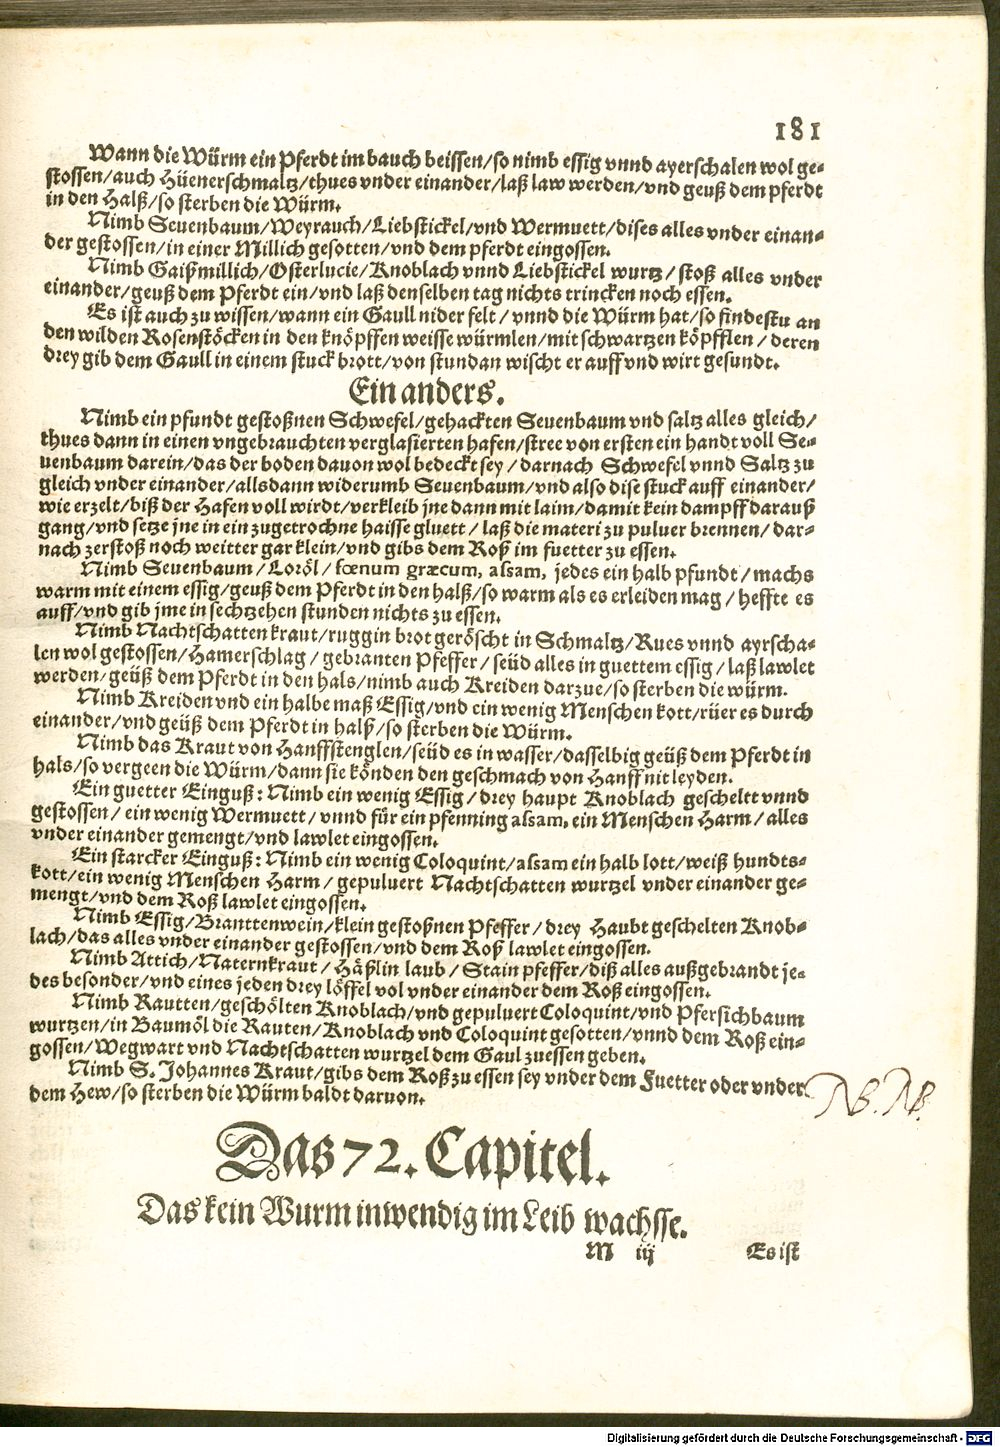 181
Wann die Würm ein Pferdt im bauch beissen/so nimb essig vnnd ayerschalen wol ge-
stossen/auch Hüenerschmaltz/thues vnder einander/laß law werden/vnd geuß dem pferdt
in den Halß/so sterben die Würm.
Nimb Seuenbaum/Weyrauch/Liebstickel/vnd Wermuett/dises alles vnder einan-
der gestossen/in einer Millich gesotten/vnd dem pferdt eingossen.
Nimb Gaißmillich/Osterlucie/Knoblach vnnd Liebstickel wurtz/stoß alles vnder
einander/geuß dem Pferdt ein/vnd laß denselben tag nichts trincken noch essen.
Es ist auch zu wissen/wann ein Gaull nider felt/vnnd die Würm hat/so findestu an
den wilden Rosenstöcken in den knöpffen weisse würmlen/mit schwartzen köpfflen/deren
drey gib dem Gaull in einem stuck brott/von stundan wischt er auff vnd wirt gesundt.
Ein anders.
Nimb ein pfundt gestoßnen Schwefel/gehackten Seuenbaum vnd saltz alles gleich/
thues dann in einen vngebrauchten verglasierten hafen/stree von ersten ein handt voll Se-
uenbaum darein/das der boden dauon wol bedeckt sey/darnach Schwefel vnnd Saltz zu
gleich vnder einander/allsdann widerumb Seuenbaum/vnd also dise stuck auff einander/
wie erzelt/biß der Hafen voll wirdt/verkleib jne dann mit laim/damit kein dampff darauß
gang/vnd setze jne in ein zugetrochne haisse gluett/laß die materi zu puluer brennen/dar-
nach zerstoß noch weitter gar klein/vnd gibs dem Roß im fuetter zu essen.
Nimb Seuenbaum/Loröl/fœnum græcum, assam, jedes ein halb pfundt/machs
warm mit einem essig/geuß dem Pferdt in den halß/so warm als es erleiden mag/heffte es
auff/vnd gib jme in sechtzehen stunden nichts zu essen.
Nimb Nachtschatten kraut/ruggin brot geröscht in Schmaltz/Rues vnnd ayrscha-
len wol gestossen/Hamerschlag/gebranten Pfeffer/seüd alles in guettem essig/laß lawlet
werden/geüß dem Pferdt in den hals/nimb auch Kreiden darzue/so sterben die würm.
Nimb Kreiden vnd ein halbe maß Essig/vnd ein wenig Menschen kott/rüer es durch
einander/vnd geüß dem Pferdt in halß/so sterben die Würm.
Nimb das Kraut von Hanffstenglen/seüd es in wasser/dasselbig geüß dem Pferdt in
hals/so vergeen die Würm/dann sie könden den geschmach von Hanff nit leyden.
Ein guetter Einguß: Nimb ein wenig Essig/drey haupt Knoblach gescheltt vnnd
gestossen/ein wenig Wermuett/vnnd für ein pfenning assam, ein Menschen Harm/alles
vnder einander gemengt/vnd lawlet eingossen.
Ein starcker Einguß: Nimb ein wenig Coloquint/assam ein halb lott/weiß hundts-
kott/ein wenig Menschen Harm/gepuluert Nachtschatten wurtzel vnder einander ge-
mengt/vnd dem Roß lawlet eingossen.
Nimb Essig/Branttenwein/klein gestoßnen Pfeffer/drey Haubt geschelten Knob-
lach/das alles vnder einander gestossen/vnd dem Roß lawlet eingossen.
Nimb Attich/Naternkraut/Häßlin laub/Stain pfeffer/diß alles außgebrandt je-
des besonder/vnd eines jeden drey löffel vol vnder einander dem Roß eingossen.
Nimb Rautten/geschölten Knoblach/vnd gepuluert Coloquint/vnd Pfersichbaum
wurtzen/in Baumöl die Rauten/Knoblach vnd Coloquint gesotten/vnnd dem Roß ein-
gossen/Wegwart vnd Nachtschatten wurtzel dem Gaul zuessen geben.
Nimb S. Johannes Kraut/gibs dem Roß zu essen sey vnder dem Fuetter oder vnder
dem Hew/so sterben die Würm baldt daruon.
NB. NB.
Das 72. Capitel.
Das kein Wurm inwendig im Leib wachsse.
M iij Es ist
Digitalisierung gefördert durch die Deutsche Forschungsgemeinschaft - DFG